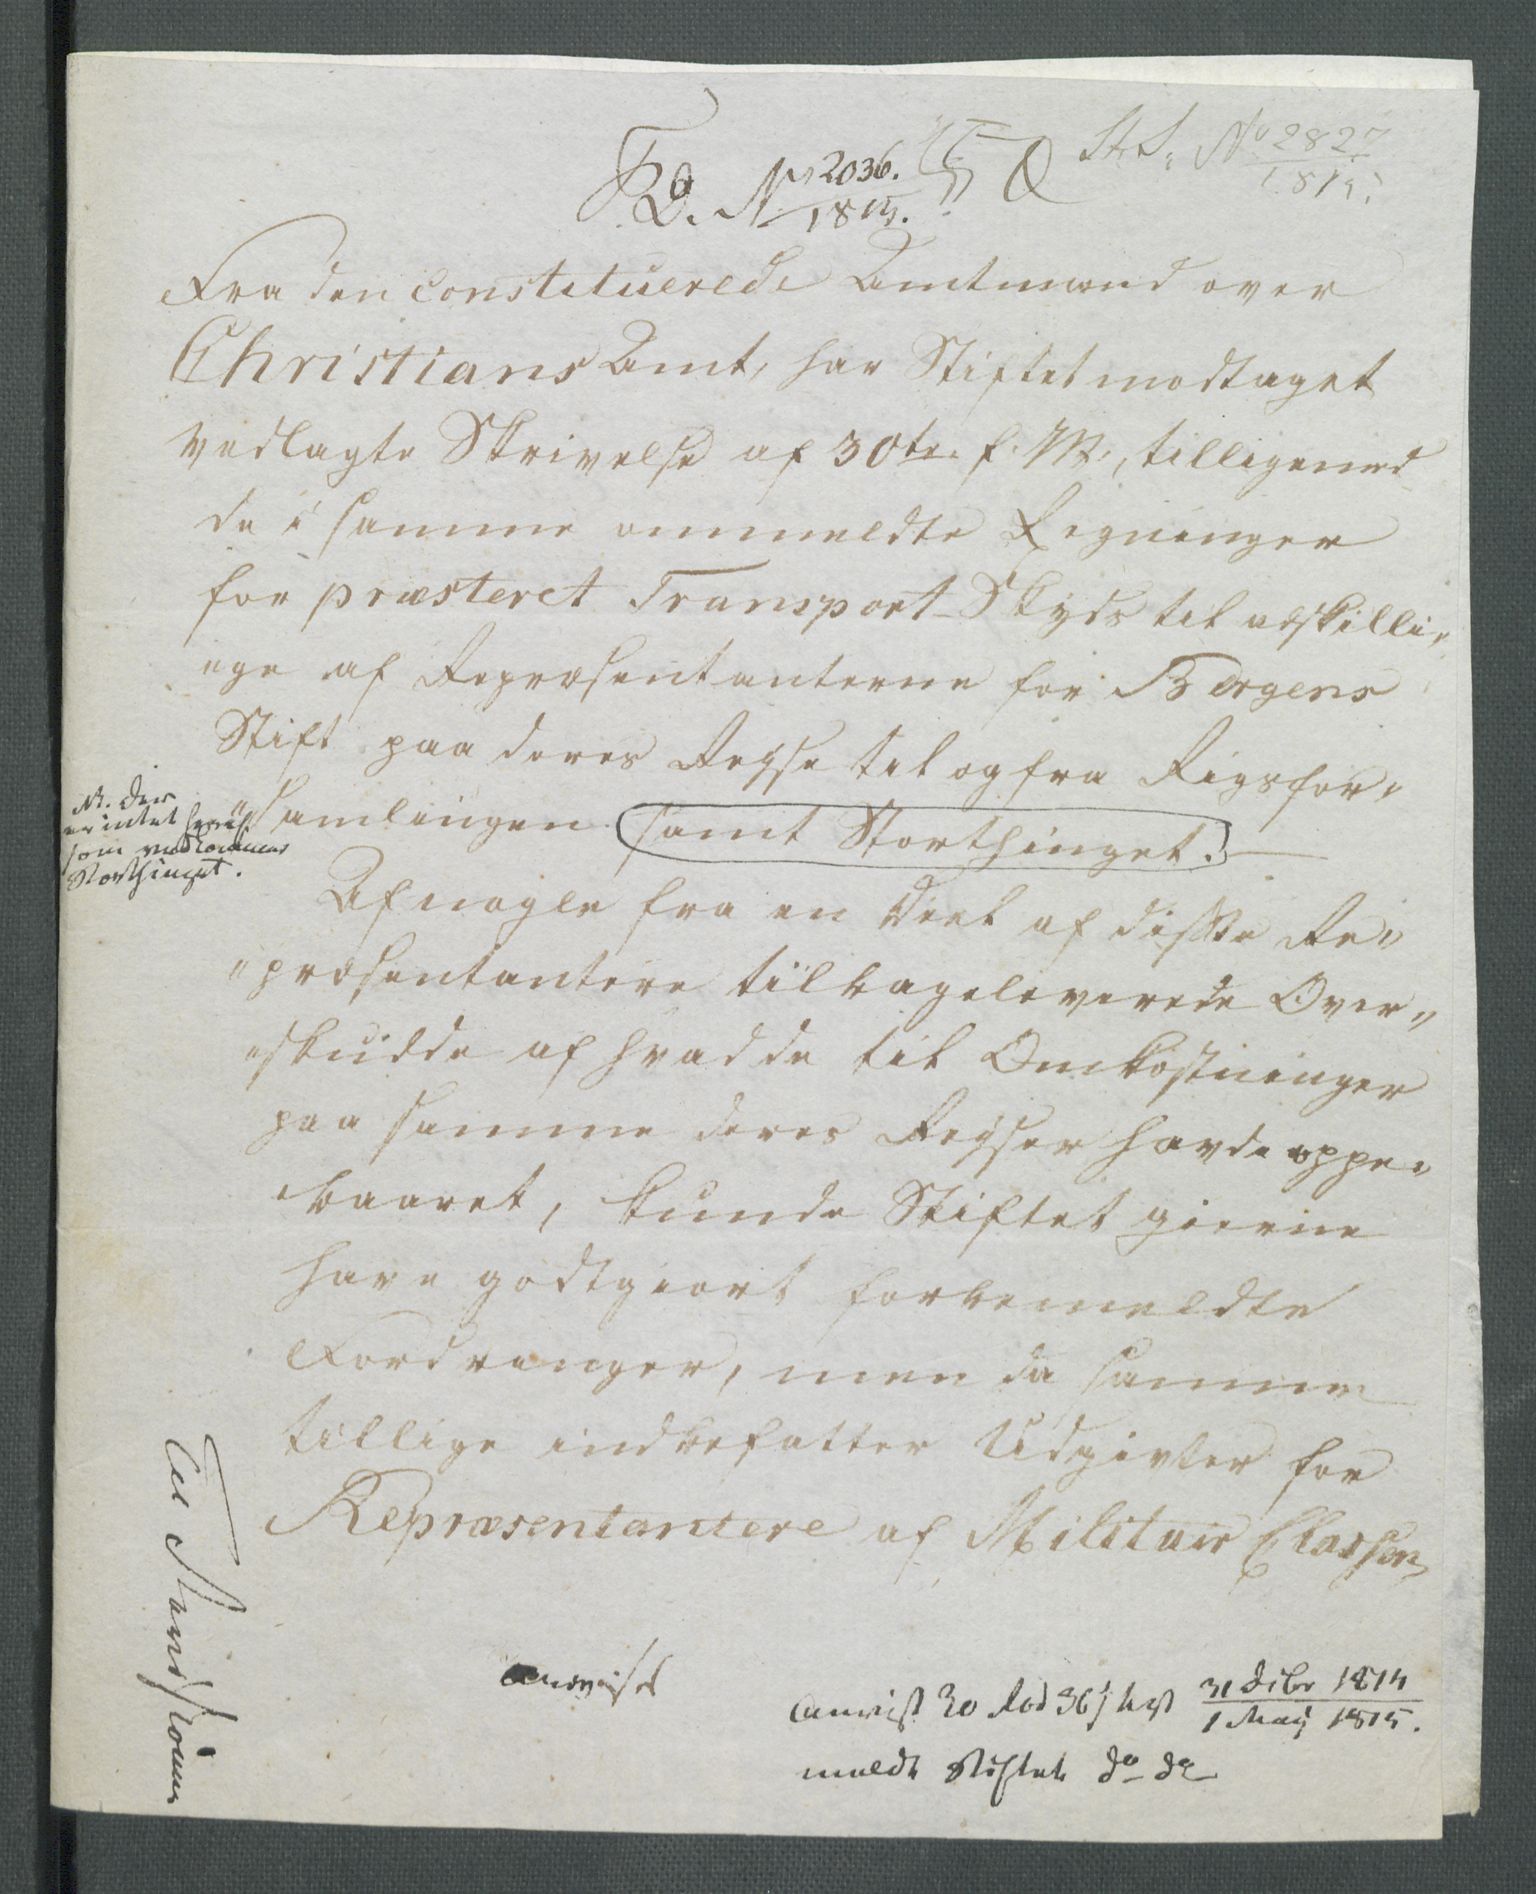 F. D. No 2036.
1815.
St. S. No 2827
1815.
Fra den constituerede Amtmand over
Christians Amt, har Stiftet modtaget
vedlagte Skrivelse af 30te f. M., tilligemed
de i samme ommeldte Regninger
for præsteret Transport-Skyds til adskilli„
„ge af Repræsentanterne for Bergens
Stift paa deres Reyse til og fra Rigsfor„
„samlingen samt Storthinget.
NB. der
er intet
som vedkommer
Storthinget.
Af nogle fra en Deel af disse Re„
„præsentantere tilbageleverede Over„
„skudde af hvad de til Omkostninger
paa samme deres Reyser havde oppe„
baaret, kunde Stiftet gierne
have godtgiort forbemeldte
Fordringer, men da samme
tillige indbefatter Udgivter for
Repræsentantere af Militair Classen,
anviist
Anvist 20 Rbd 36 s
31 Decbr 1814
1 May 1815.
meldt Stiftet do do